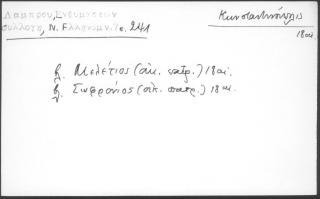 Λαμπρου, Ενθυμησεων
συλλογη, Ν. Ελληνομν. 7 σ. 241
Κωνσταντινούπολις
18 αι.
β. Μελέτιος (οἰκ. πατρ.) 18 αἰ.
β. Σωφρόνιος (οἰκ. πατρ.) 18 αἰ.